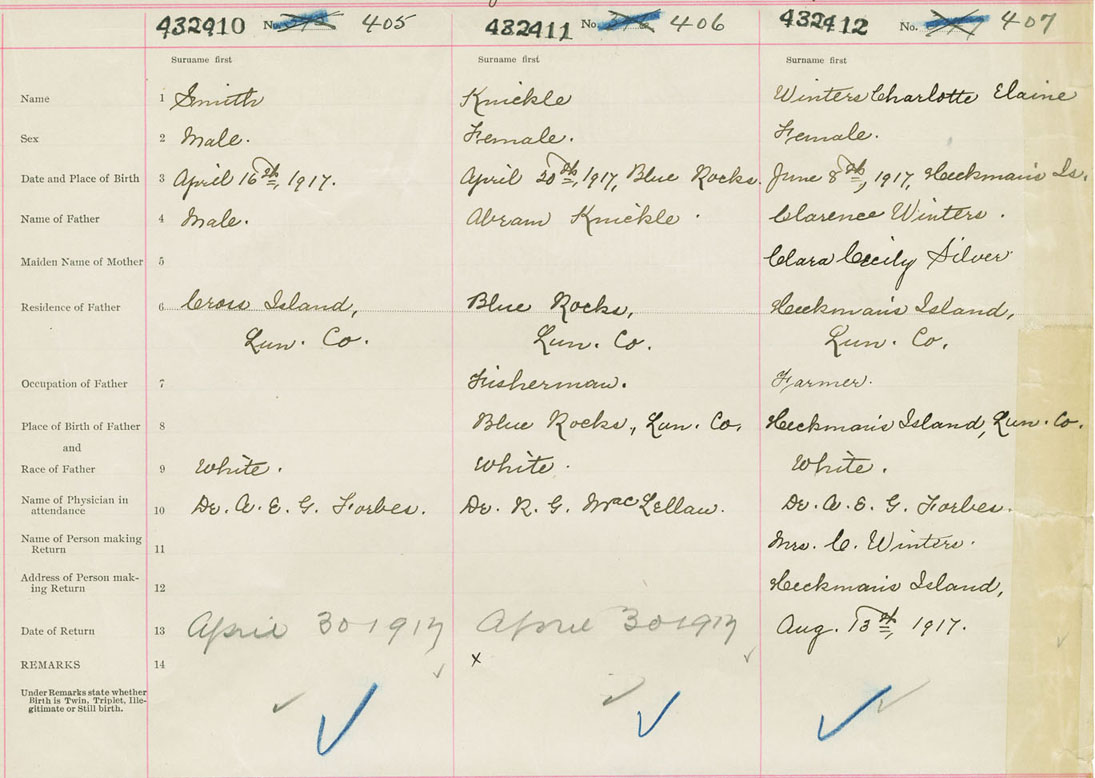 432910 No. 405 432911 No. 406 432912 No. 407
Surname first Surname first Surname first
Name 1 Smith Knickle Winters Charlotte Elaine
Sex 2 Male. Female. Female.
Date and Place of Birth 3 April 16th, 1917. April 20th, 1917, Blue Rocks. June 8th, 1917, Heckman's Is.
Name of Father 4 Male. Abram Knickle. Clarence Winters.
Maiden Name of Mother 5 Clara Cecily Silver
Residence of Father 6 Cross Island, Blue Rocks, Heckman's Island,
Lun. Co. Lun. Co. Lun. Co.
Occupation of Father 7 Fisherman. Farmer.
Place of Birth of Father 8 Blue Rocks, Lun. Co. Heckman's Island, Lun. Co.
and
Race of Father 9 White. White. White.
Name of Physician in
attendance 10 Dr. A. E. G. Forbes. Dr. R. G. MacLellan. Dr. A. E. G. Forbes.
Name of Person making
Return 11 Mrs. C. Winters.
Address of Person mak-
ing Return 12 Heckman's Island,
Date of Return 13 April 30 1917 April 30 1917 Aug. 13th, 1917.
REMARKS 14 x
Under Remarks state whether
Birth is Twin, Triplet, Ille-
gitimate or Still birth.